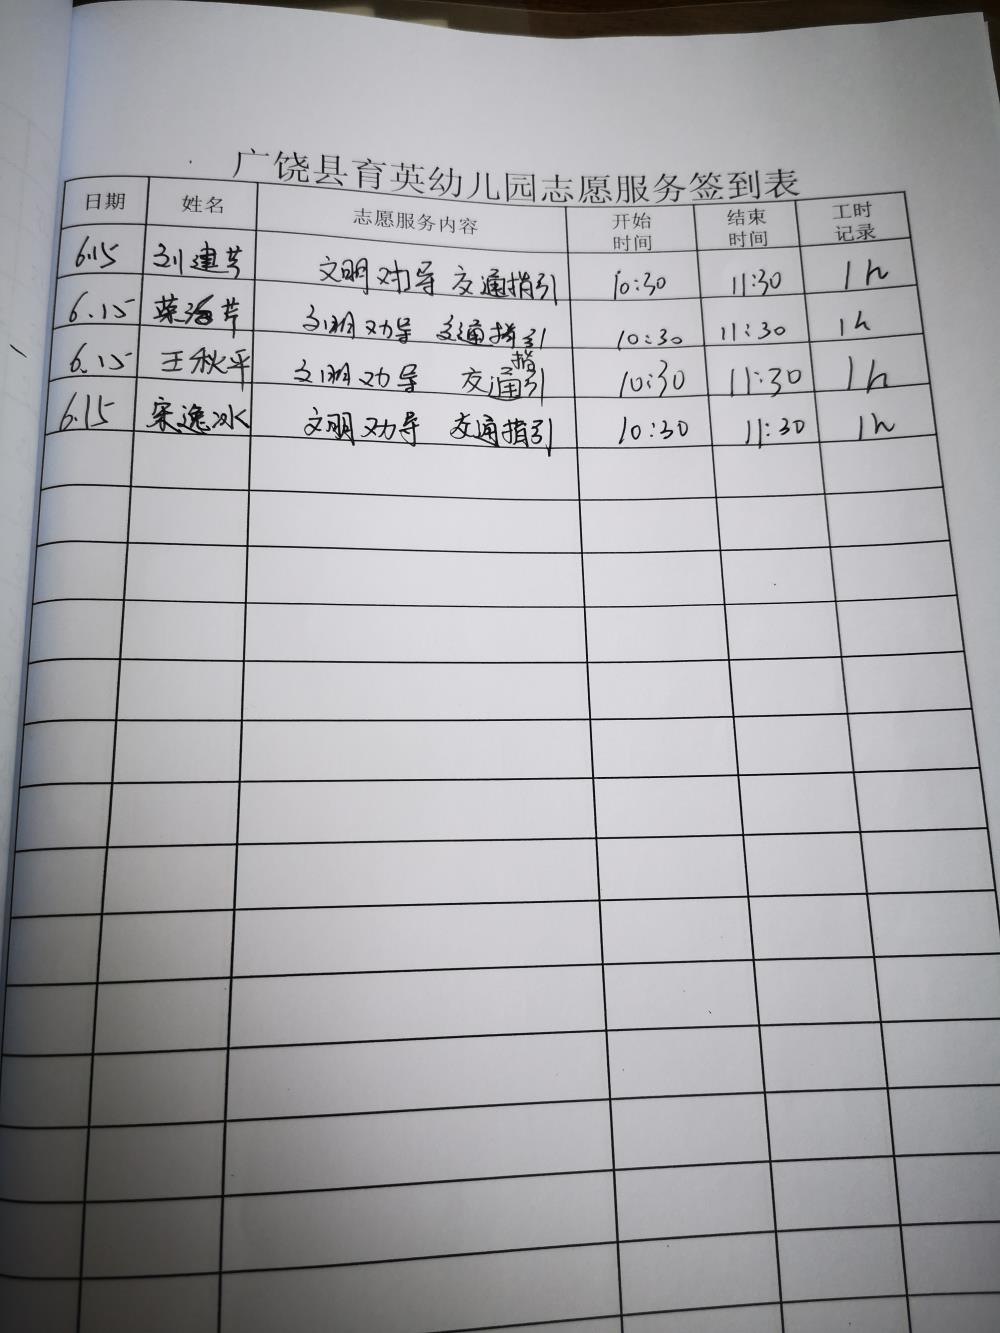 广饶县育英幼儿园志愿服务签到表
日期 姓名 志愿服务内容 开始时间 结束时间 工时记录
6.15 刘建芹 文明劝导 交通指引 10:30 11:30 1h
6.15 荣海芹 文明劝导 交通指引 10:30 11:30 1h
6.15 王秋平 文明劝导 交通指引 10:30 11:30 1h
6.15 宋逸冰 文明劝导 交通指引 10:30 11:30 1h